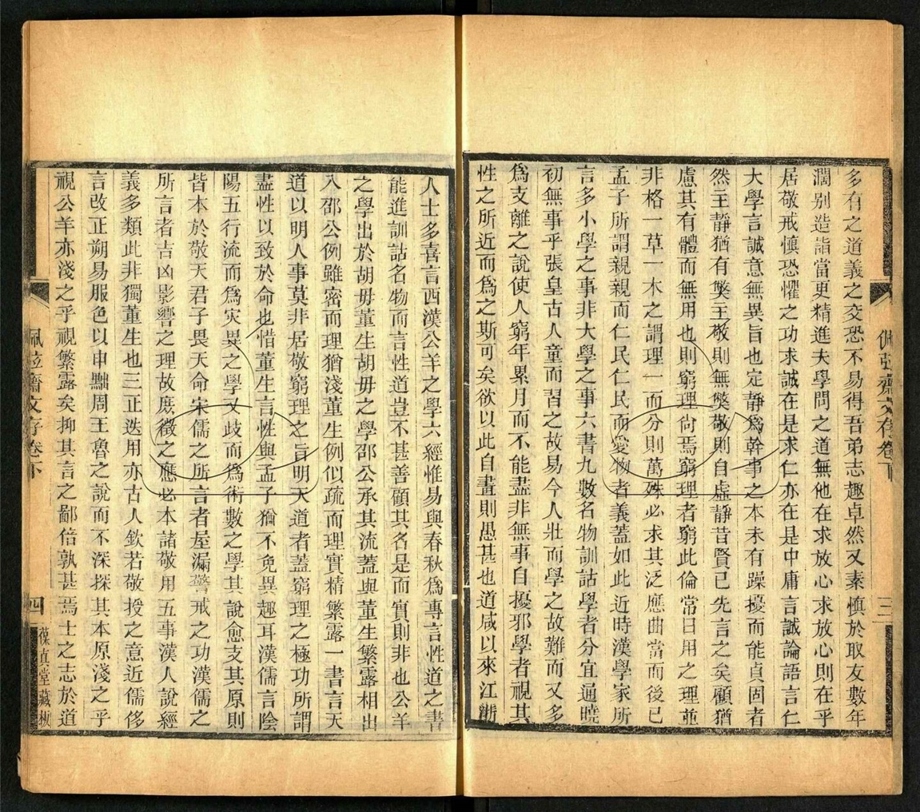 多有之道義之交恐不易得吾弟志趣卓然又素愼於取友數年
濶别造詣當更精進夫學問之道無他在求放心求放心則在乎
居敬戒愼恐懼之功求誠在是求仁亦在是中庸言誠論語言仁
大學言誠意無異旨也定靜爲幹事之本未有躁擾而能貞固者
然主靜猶有獘主敬則無獘敬則自虛靜昔賢已先言之矣顧猶
慮其有體而無用也則窮理尙焉窮理者窮此倫常日用之理並
非格一草一木之謂理一而分則萬殊必求其泛應曲當而後已
孟子所謂親親而仁民仁民而愛物者義蓋如此近時漢學家所
言多小學之事非大學之事六書九數名物訓詁學者分宜通曉
初無事乎張皇古人童而習之故易今人壯而學之故難而又多
爲支離之說使人窮年累月而不能盡非無事自擾邪學者視其
性之所近而爲之斯可矣欲以此自畫則愚甚也道咸以來江浙
佩弦齋文存卷下
三
人士多喜言西漢公羊之學六經惟易與春秋爲專言性道之書
能進訓詁名物而言性道豈不甚善顧其名是而實則非也公羊
之學出於胡毋董生胡毋之學邵公承其流蓋與董生繁露相出
入邵公例雖密而理猶淺董生例似疏而理實精繁露一書言天
道以明人事莫非居敬窮理之旨明天道者蓋窮理之極功所謂
盡性以致於命也惜董生言性與孟子猶不免異趣耳漢儒言陰
陽五行流而爲災異之學又歧而爲術數之學其說愈支其原則
皆本於敬天君子畏天命宋儒之所言者屋漏警戒之功漢儒之
所言者吉凶影響之理故庶徵之應必本諸敬用五事漢人說經
義多類此非獨董生也三正迭用亦古人欽若敬授之意近儒侈
言改正朔易服色以申黜周王魯之說而不深探其本原淺之乎
視公羊亦淺之乎視繁露矣抑其言之鄙倍孰甚焉士之志於道
佩弦齋文存卷下
四
葆真堂藏板